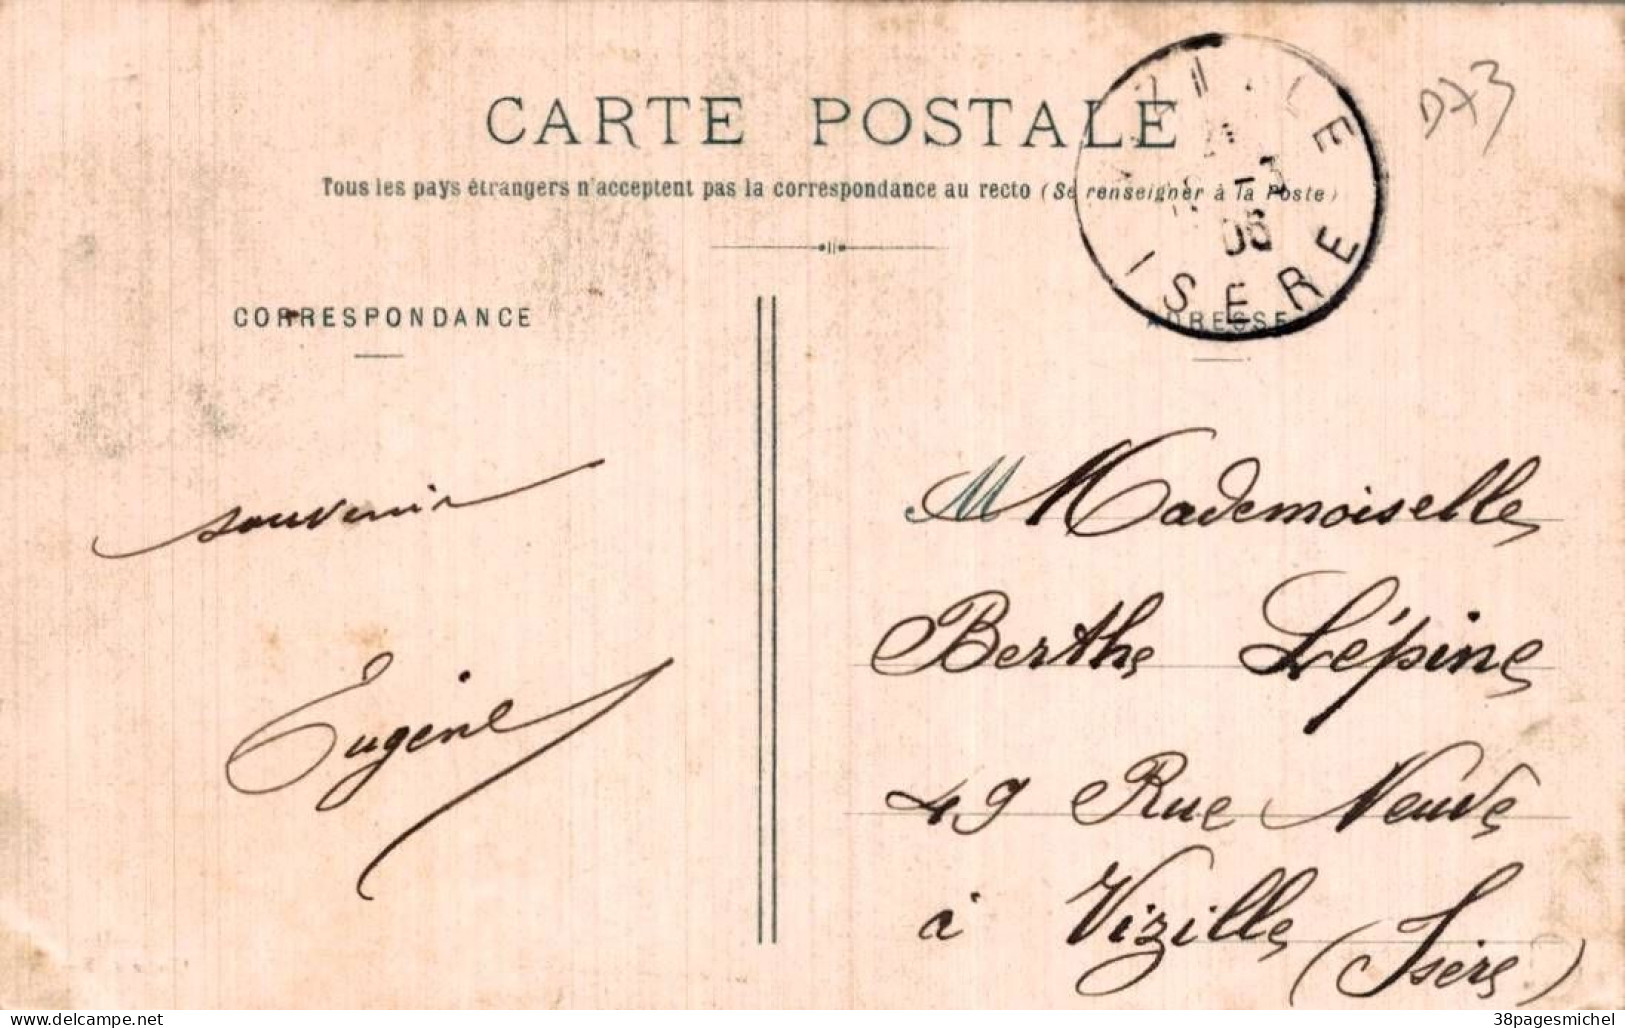 CARTE POSTALE
Tous les pays étrangers n'acceptent pas la correspondance au recto (Se renseigner à la Poste)
CORRESPONDANCE
ADRESSE
ISERE
06
D73
souvenir
Eugène
M Mademoiselle
Berthe Lépine
49 Rue Neuve
à Vizille (Isère)
delcampe.net
38pagesmichel